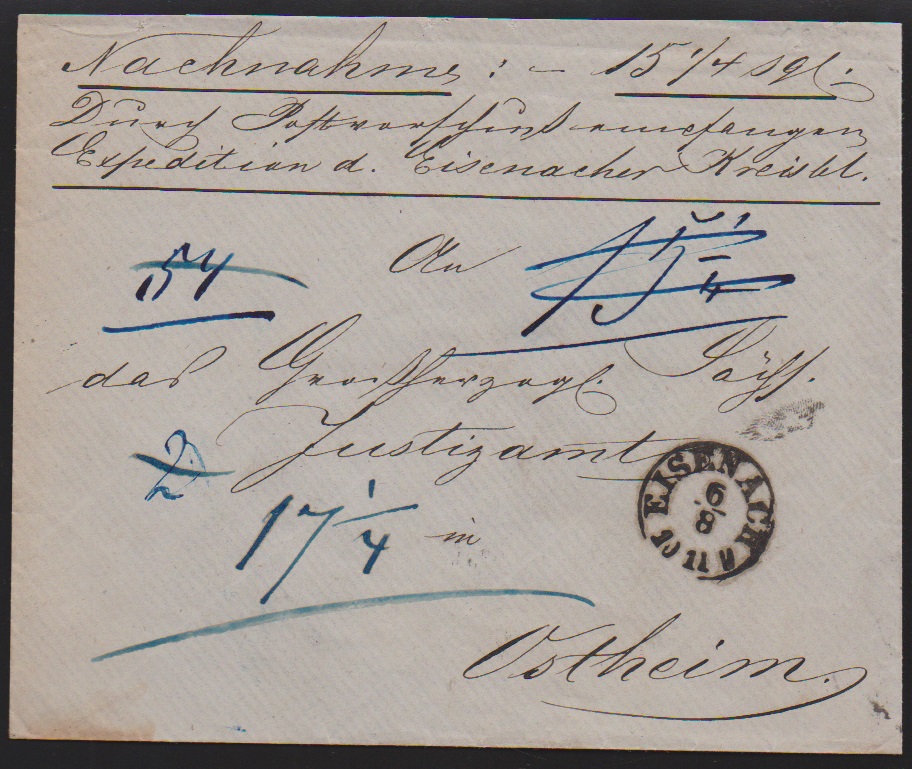 Nachnahme : – 15 1/4 sgl.
Durch Postvorschuß empfangen
Expedition d. Eisenacher Kreisbl.
An
54
15 1/4
das Großherzogl. Sächs.
Justizamt
2
EISENACH
9/8
17 1/4
in
Ostheim.